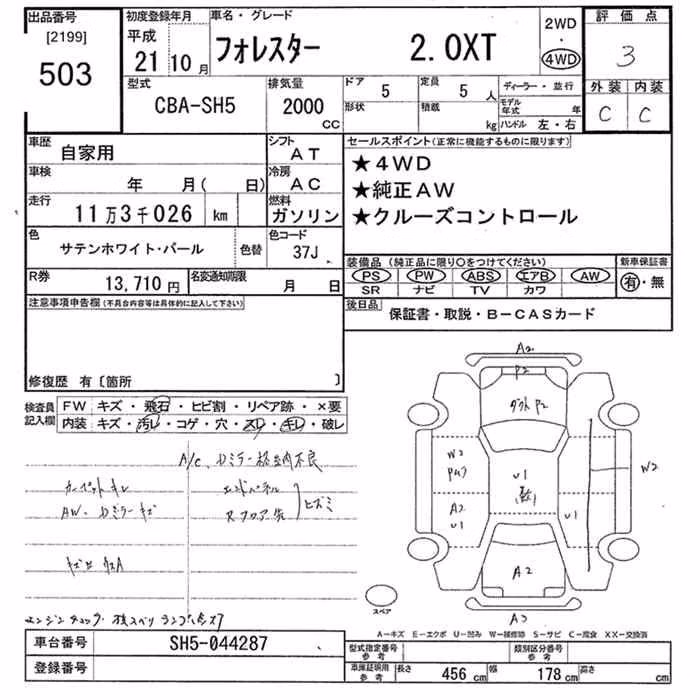 出品番号 初度登録年月 車名・グレード 2WD 評価点
[2199] 平成 フォレスター 2.0XT ・ 3
503 21年 10月 4WD
型式 排気量 ドア 5 定員 5人 ディーラー・並行 外装 内装
CBA-SH5 2000cc 形状 積載 kg モデル年式 年 C C
ハンドル 左・右
車歴 自家用 シフト AT セールスポイント(正常に機能するものに限ります)
車検 年 月( 日) 冷房 AC ★4WD
走行 11万3千026 km 燃料 ガソリン ★純正AW
★クルーズコントロール
色 サテンホワイト・パール 色替 色コード 37J
装備品(純正品に限り○をつけてください) 新車保証書
PS PW ABS エアB AW 有・無
SR ナビ TV カワ
R券 13,710円 名変通知期限 月 日
注意事項申告欄(不具合内容等は具体的に記入して下さい) 後日品 保証書・取説・B-CASカード
修復歴 有〔箇所 〕
検査員記入欄 FW キズ・飛石・ヒビ割・リペア跡・×要
内装 キズ・汚レ・コゲ・穴・スレ・キレ・破レ
A/C、Dミラー格納不良
カーペットキレ エンドパネル
AW・Dミラーキズ Rフロア先 ヒズミ
A2
P2
ダクトP2
W2 U1 W2
A2 U1 U1
A2
スペア
A-キズ E-エクボ U-凹み W-補修跡 S-サビ C-腐食 XX-交換済
車台番号 SH5-044287 型式指定番号 参考 類別区分番号 参考
登録番号 車庫証明用 参考 長さ 456cm 幅 178cm 高さ cm